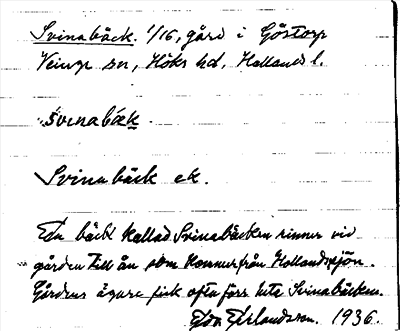 Svinabäck. 1/16, gård i Göstorp
Veinge sn, Höks hd, Hallands l.
svinabäk
Svinabäck ek.
En bäck kallad Svinabäcken rinner vid
gården till ån som kommer från Hollandssjön.
Gårdens ägare fick ofta förr heta Svinabäcken.
Edv. Erlandsson. 1936.